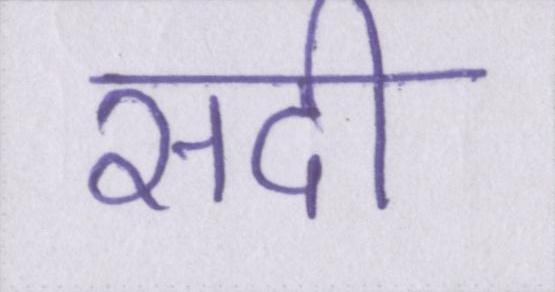 सदी